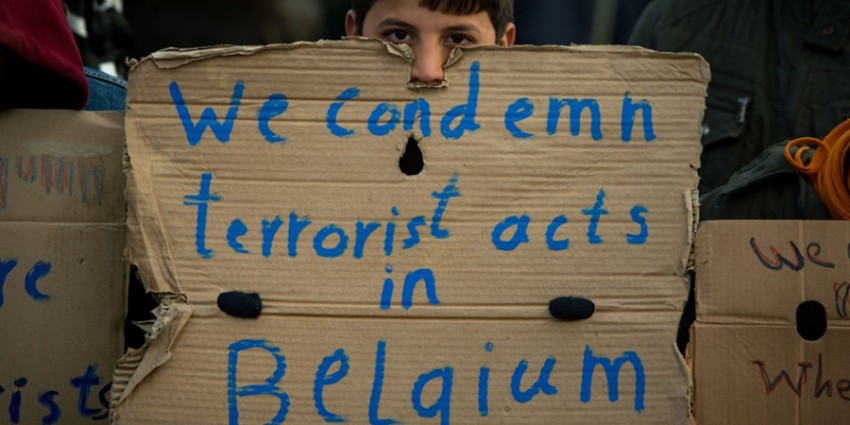 We condemn
terrorist acts
in
Belgium
re
ists
We
Whe